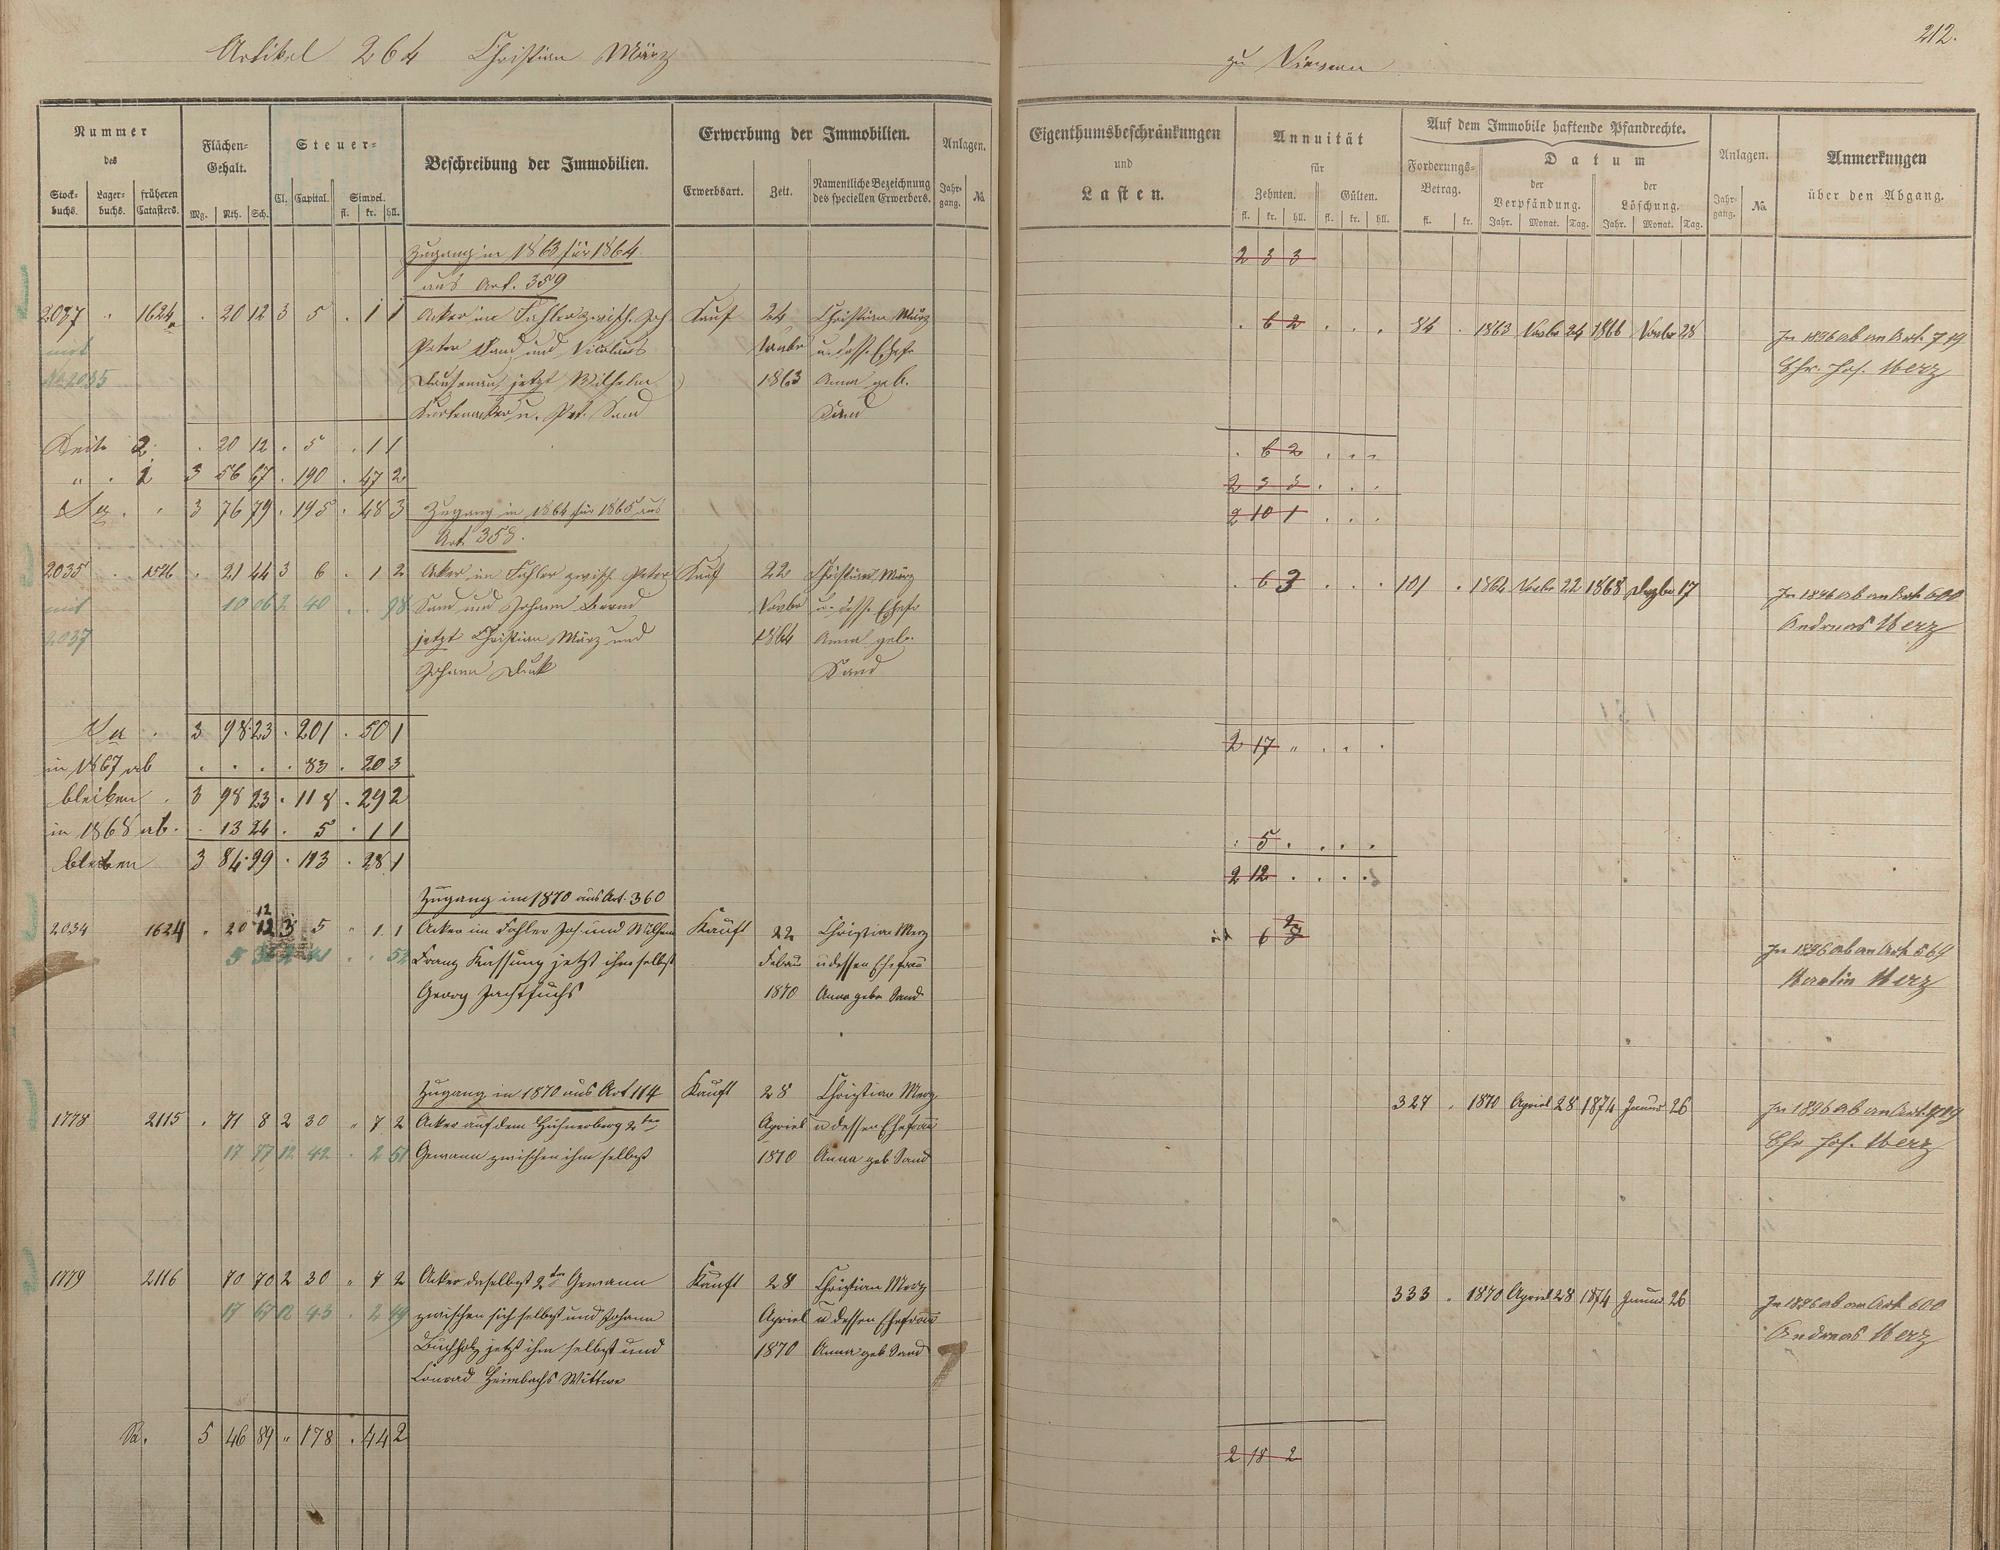 Artikel 264 Christian März
zu
212.
Nummer
des
Stock-
buchs.
Lager-
buchs.
früheren
Catasters.
Flächen-
Gehalt.
Mg. Rth. Sch.
Steuer-
Cl. Capital. Simpel.
fl. kr. hll.
Beschreibung der Immobilien.
Erwerbung der Immobilien.
Erwerbsart. Zeit. Namentliche Bezeichnung
des speciellen Erwerbers.
Anlagen.
Jahr-
gang. No.
Eigenthumsbeschränkungen
und
Lasten.
Annuität
für
Zehnten. Gülten.
fl. kr. hll. fl. kr. hll.
Auf dem Immobile haftende Pfandrechte.
Forderungs-
Betrag.
fl. kr.
Datum
der
Verpfändung.
Jahr. Monat. Tag.
der
Löschung.
Jahr. Monat. Tag.
Anlagen.
Jahr-
gang. No.
Anmerkungen
über den Abgang.
Zugang in 1863 für 1864
2 3 3
aus Art. 359
2037 1624a 20 12 3 5 1 1 Acker im Fahler zwisch. Joh. Kauf 24 Christian März
6 2 84 1863 Novbr 24 1866 Novbr 28
mit Peter Sand und Nicolaus Novbr u. dess. Ehefr
No 2035 jetzt Wilhelm 1863 Anna geb.
u. Pet. Sand Sand
In 1896 ab an Art. 719
Chr. Jos. Merz
Seite 2. 20 12 5 1 1 6 2
" 1 3 56 67 190 47 2 2 3 3
Sa. 3 76 79 195 48 3 Zugang in 1864 für 1865 aus 2 10 1
Art. 358.
2035 1526 21 44 3 6 1 2 Acker im Fahler zwisch. Peter Kauf 22 Christian März
6 3 101 1864 Novbr 22 1868 Dezbr 17
mit 10 06 2 40 98 Sand und Johann Bernd Novbr u. dess. Ehefr
2037 jetzt Christian März und 1864 Anna geb.
Johann Sand
In 1896 ab an Art 600
Andreas Merz
Sa 3 98 23 201 50 1 2 17 "
in 1867 ab 83 20 3
bleiben 3 98 23 118 29 2
in 1868 ab. 13 24 5 1 1 5
bleiben 3 84 99 113 28 1 2 12
Zugang im 1870 aus Art. 360
12
2034 1624 20 12 3 5 1 1 Acker im Fahler Joh. und Wilhelm Kauft 22 Christian Merz
6
52 Franz jetzt ihm selbst Febru u dessen Ehefrau
Georg 1870 Anna gebr Sand
In 1896 ab an Art 569
Martin Merz
Zugang in 1870 aus Art 114 Kauft 28 Christian Merz
327 1870 Apriel 28 1874 Januar 26
1778 2115 71 8 2 30 " 7 2 Acker auf dem Hühnerberg 2ter Apriel u dessen Ehefrau
17 77 12 42 2 51 Gewann zwischen ihm selbst 1870 Anna geb Sand
In 1896 ab an Art. 719
Chr Jos. Merz
1779 2116 70 70 2 30 " 7 2 Acker daselbst 2ter Gewann Kauft 28 Christian Merz
333 1870 Apriel 28 1874 Januar 26
17 67 12 43 2 49 zwischen sich selbst und Johann Apriel u dessen Ehefrau
Buchholz jetzt ihm selbst und 1870 Anna geb Sand
Conrad Heimbachs Wittwe
In 1896 ab an Art 600
Andreas Merz
Sa. 5 46 89 " 178 44 2
2 18 2